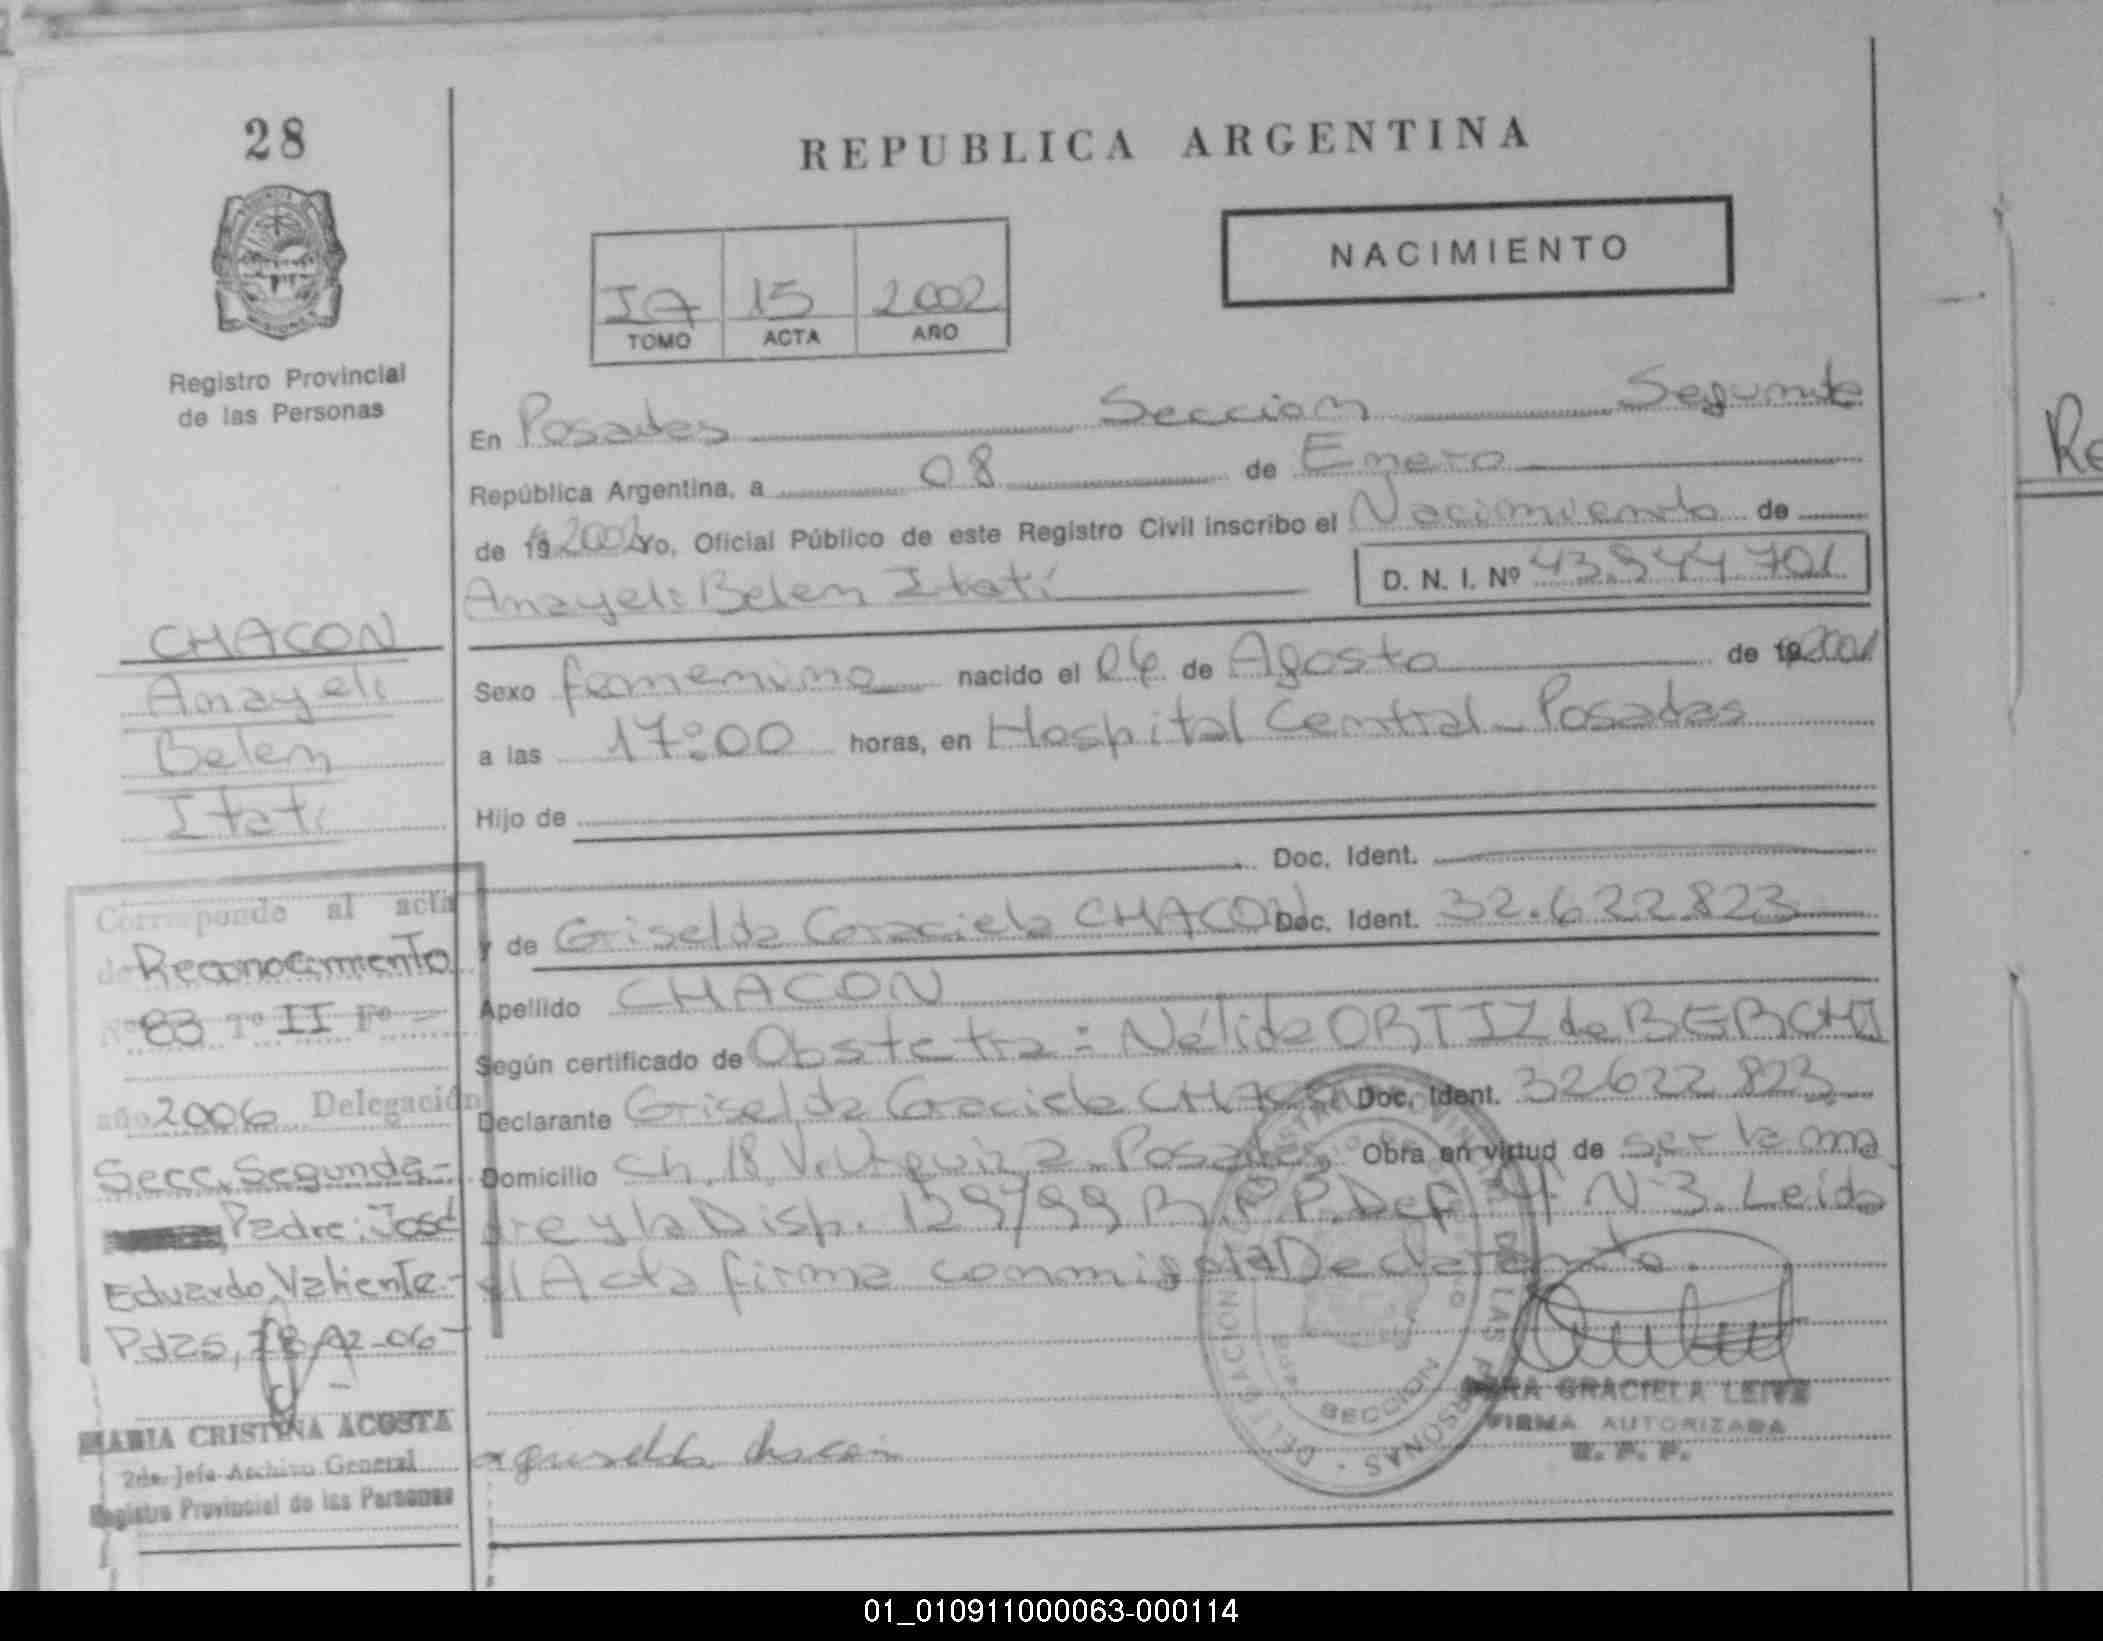 28
Registro Provincial
de las Personas
CHACON
Anayeli
Belen
Itati
Corresponde al acta
de Reconocimiento
Nº 83 Tº II Fº -
año 2006 Delegación
Secc. Segunda-
Padre: José
Eduardo Valiente-
Pdas, -06-
MARIA CRISTINA ACOSTA
2da. Jefa Archivo General
Registro Provincial de las Personas
REPUBLICA ARGENTINA
NACIMIENTO
IA 15 2002
TOMO ACTA AÑO
En Posadas Seccion Segunda
República Argentina, a 08 de Enero
de 19 2002 yo, Oficial Público de este Registro Civil inscribo el Nacimiento de
Anayeli Belen Itatí D. N. I. Nº 43.944.701
Sexo femenino nacido el 06 de Agosto de 19 2001
a las 17:00 horas, en Hospital Central - Posadas
Hijo de
Doc. Ident.
y de Griselda Graciela CHACON Doc. Ident. 32.622.823
Apellido CHACON
Según certificado de Obstetra: Nélida ORTIZ de BERCHI
Declarante Griselda Graciela CHACON Doc. Ident. 32622823
Domicilio Ch. 18 V. Urquiza - Posadas Obra en virtud de ser la ma
dre y la Disp. 129/99 R.P.P. Def. Of. Nº 3. Leida
el Acta firma conmigo la Declarante.
DELEGACION SECCION DE LAS PERSONAS
griselda chacon
GRACIELA LEIVA
FIRMA AUTORIZADA
R. P. P.
Re
01_010911000063-000114